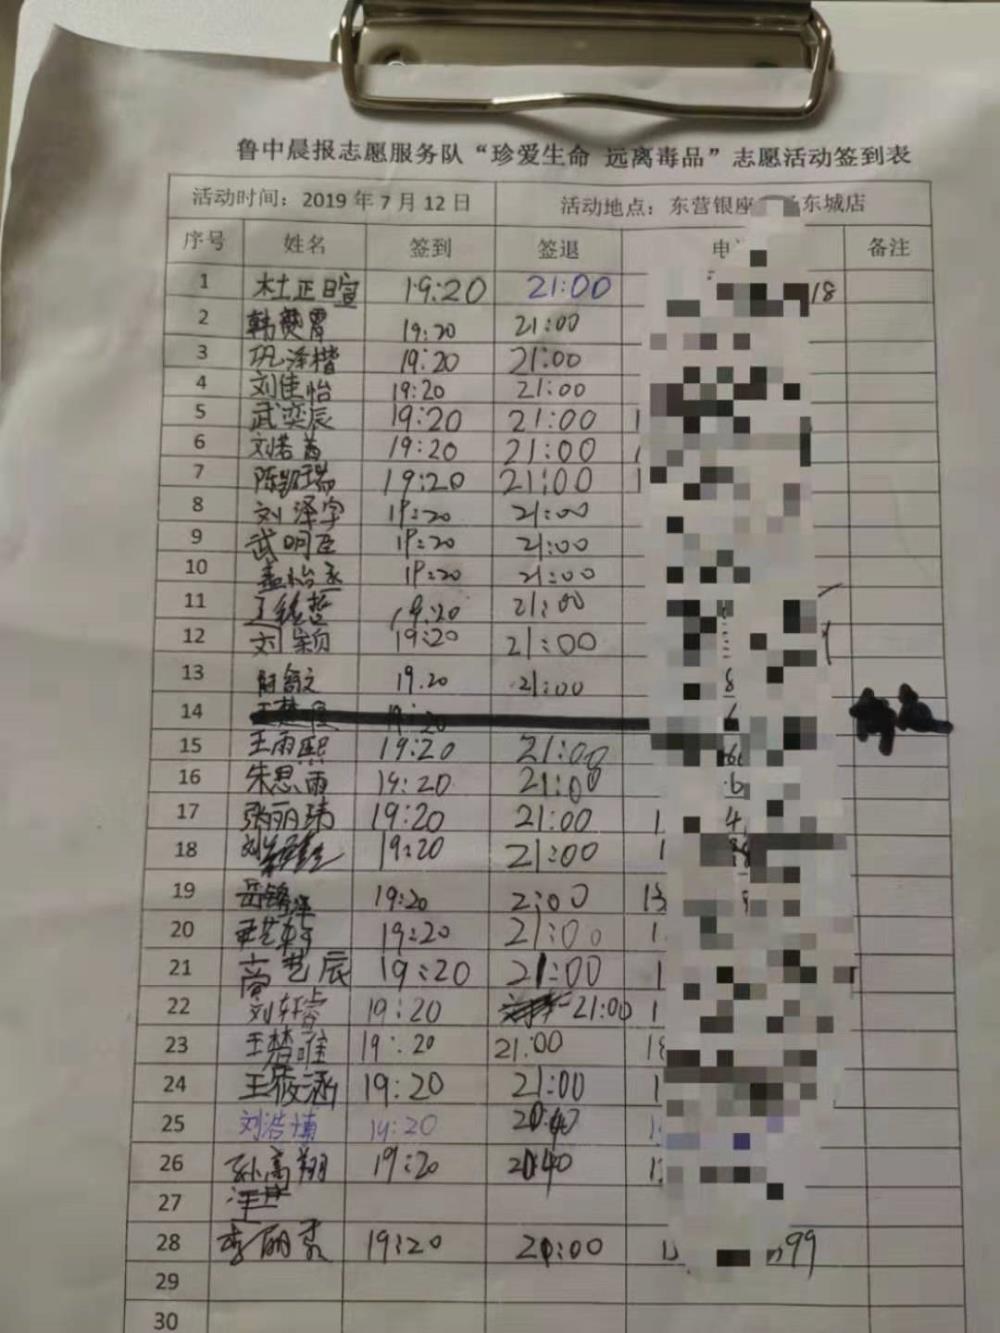 鲁中晨报志愿服务队“珍爱生命 远离毒品”志愿活动签到表
活动时间：2019 年 7 月 12 日 活动地点：东营银座 东城店
序号 姓名 签到 签退 电 备注
1 杜正日宣 19:20 21:00 18
2 韩 19:20 21:00
3 巩泽楷 19:20 21:00
4 刘佳怡 19:20 21:00
5 武奕辰 19:20 21:00 1
6 刘若茜 19:20 21:00 1
7 陈凯瑞 19:20 21:00 1
8 刘泽宇 19:20 21:00
9 武明臣 19:20 21:00
10 孟怡丞 19:20 21:00
11 19:20 21:00
12 刘颖 19:20 21:00
13 19.20 21:00 8
14 19:20
15 王雨熙 19:20 21:00 6
16 朱思雨 19:20 21:00 6
17 张丽琦 19:20 21:00 1 4
18 刘 19:20 21:00 1
19 岳锦泽 19:20 2:00 13
20 19:20 21:00 1
21 常艺辰 19:20 21:00 1
22 刘轩睿 19:20 21:00 1
23 王楚唯 19:20 21:00 18
24 王筱涵 19:20 21:00 1
25 刘浩博 19:20 20:40 1
26 孙高翔 19:20 20:40 1
27
28 李丽柔 19:20 21:00 1 99
29
30